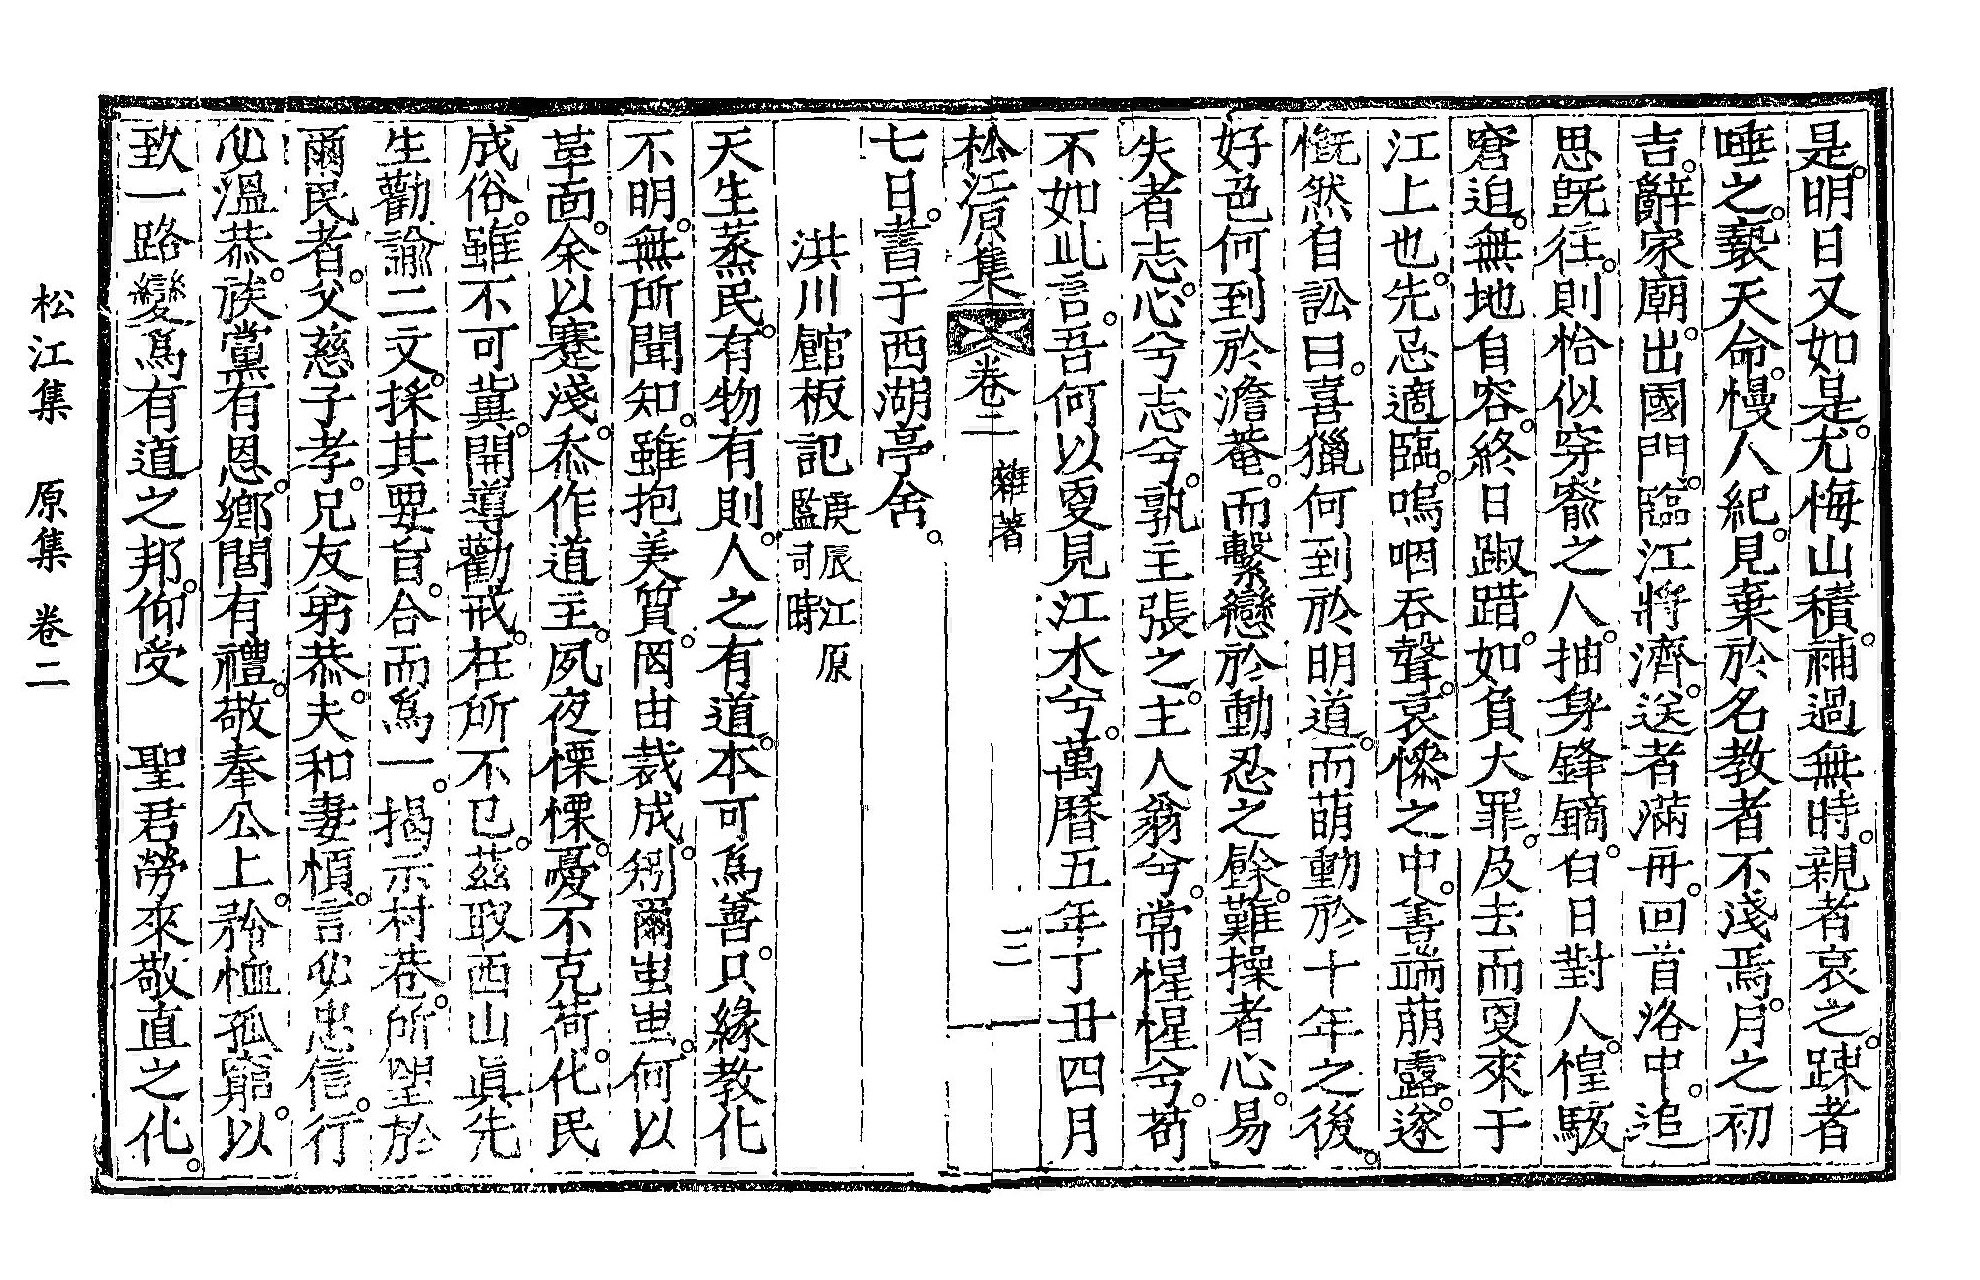 是。明日又如是。尤悔山積。補過無時。親者哀之。踈者
唾之。褻天命。慢人紀。見棄於名教者不淺焉。月之初
吉。辭家廟。出國門。臨江將濟。送者滿舟。回首洛中。追
思旣往。則恰似穿窬之人。抽身鋒鏑。白日對人。惶駭
窘迫。無地自容。終日踧踖。如負大罪。及去而夏來于
江上也。先忌適臨。嗚咽吞聲。哀慘之中。善端萠露。遂
慨然自訟曰。喜獵何到於明道。而萌動於十年之後。
好色何到於澹菴。而繫戀於動忍之餘。難操者心。易
失者志。心兮志兮。孰主張之。主人翁兮。常惺惺兮。苟
不如此言。吾何以夏見江水兮。萬曆五年丁丑四月
松江原集 卷二 雜著 三
七日。書于西湖亭舍。
洪川館板記 庚辰江原監司時
天生蒸民。有物有則。人之有道。本可爲善。只緣教化
不明。無所聞知。雖抱美質。罔由裁成。矧爾蚩蚩。何以
革面。余以蹇淺。忝作道主。夙夜慄慄。憂不克荷。化民
成俗。雖不可冀。開導勸戒。在所不已。茲取西山眞先
生勸諭二文。採其要旨。合而爲一。揭示村巷。所望於
爾民者。父慈子孝。兄友弟恭。夫和妻愼。言必忠信。行
必溫恭。族黨有恩。鄕閭有禮。敬奉公上。矜恤孤窮。以
致一路變爲有道之邦。仰受 聖君勞來敬直之化。
松江集 原集 卷二